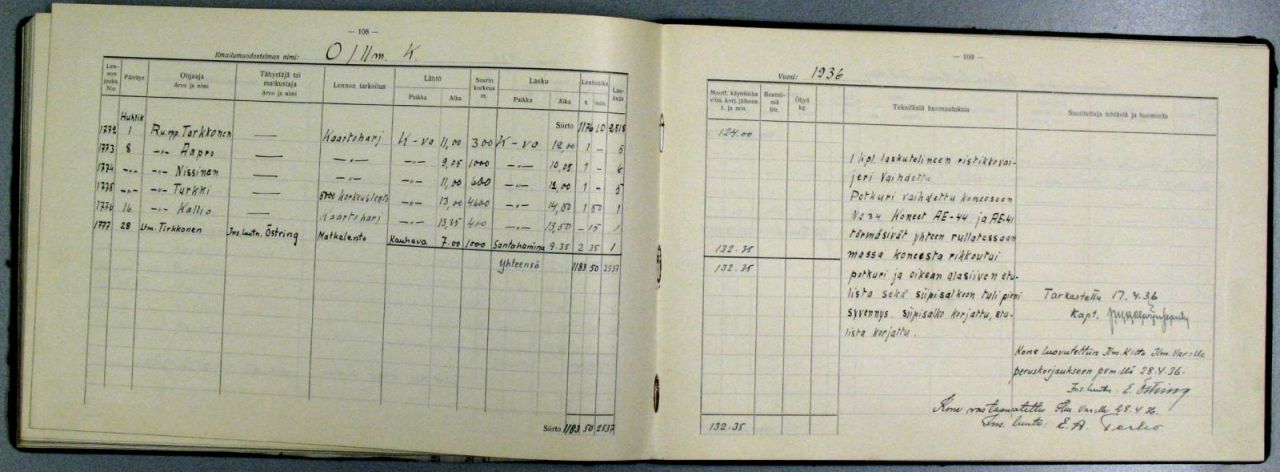 — 108 —
Ilmailumuodostelman nimi: O / Ilm. K.
Lennon juoks. N:o Päiväys Ohjaaja Arvo ja nimi Tähystäjä tai matkustaja Arvo ja nimi Lennon tarkoitus Lähtö Paikka Aika Suurin korkeus m. Lasku Paikka Aika Lentoaika t. min. Laskuja
Huhtik Siirto 1176 10 2518
1772 1 R.u.mp. Tarkkonen — Kaartoharj K-va 11,00 300 K-va 12,00 1 — 5
1773 8 -"- Aapro — -"- -"- 9,05 1000 -"- 10,05 1 - 6
1774 -"- -"- Nissinen — -"- -"- 11,00 600 -"- 12,00 1 - 5
1775 -"- -"- Turkki — korkeuslento -"- 13,00 4600 -"- 14,50 1 50 1
1776 16 -"- Kallio — Kaartoharj -"- 13,35 400 -"- 13,50 - 15 1
1777 28 Ltm. Tirkkonen Ins.luutn. Östring Matkalento Kauhava 7.00 1000 Santahamina 9.35 2 35 1
Yhteensä 1183 50 2537
Siirto 1183 50 2537
— 109 —
Vuosi: 1936
Moott. käyntiaika viim. korj. jälkeen t. ja min. Bentsiiniä litr. Öljyä kg. Teknillisiä huomautuksia Suoritettuja tehtäviä ja huomioita
124.00
1 kpl. laskutelineen ristikkovai-
jeri vaihdettu
Potkuri vaihdettu koneeseen
No 34 Koneet AE-44 ja AE-41
törmäsivät yhteen rullatessaan
132.35 massa koneesta rikkoutui
132.35 potkuri ja oikean alasiiven etu-
lista sekä siipisalkoon tuli pieni
syvennys siipisalko korjattu, etu-
lista korjattu.
Tarkastettu 17.4.36
Kapt.
Kone luovutettiin Ilm. Ilm. Var:lle
peruskorjaukseen pvm:llä 28.4.36.
Ins.luutn. E. Östring
Kone vastaanotettu Ilm. Var:lla 28.4.36.
Ins. luutn: E. A.
132.35